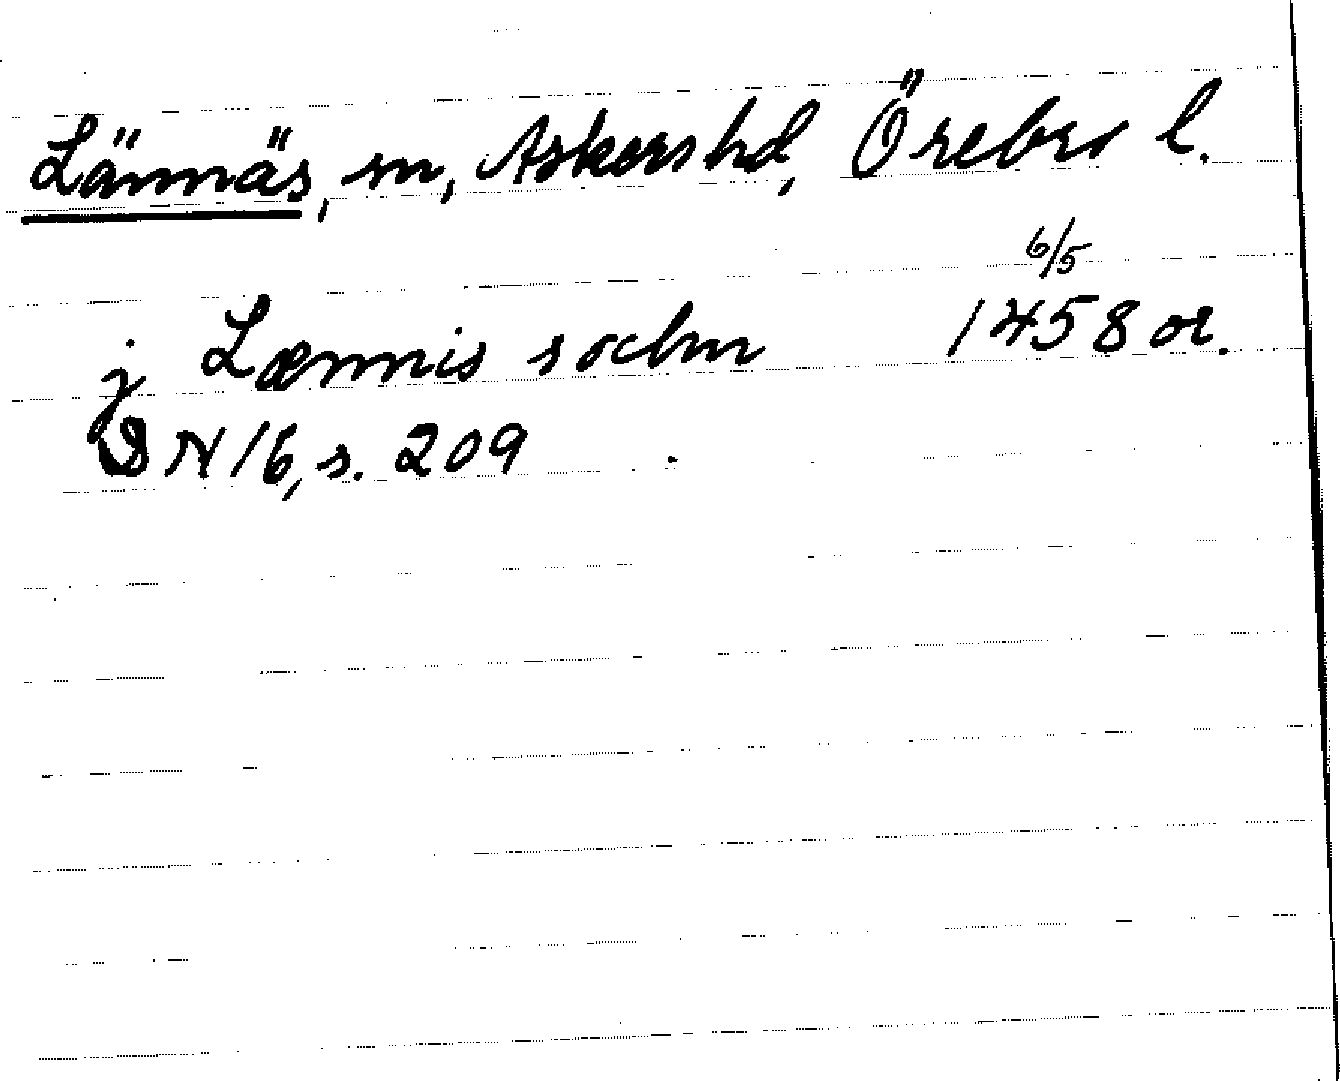 Lännäs, sn, Askers hd, Örebro l.
6/5
j Lænnis sochn 1458 or.
DN 16, s. 209